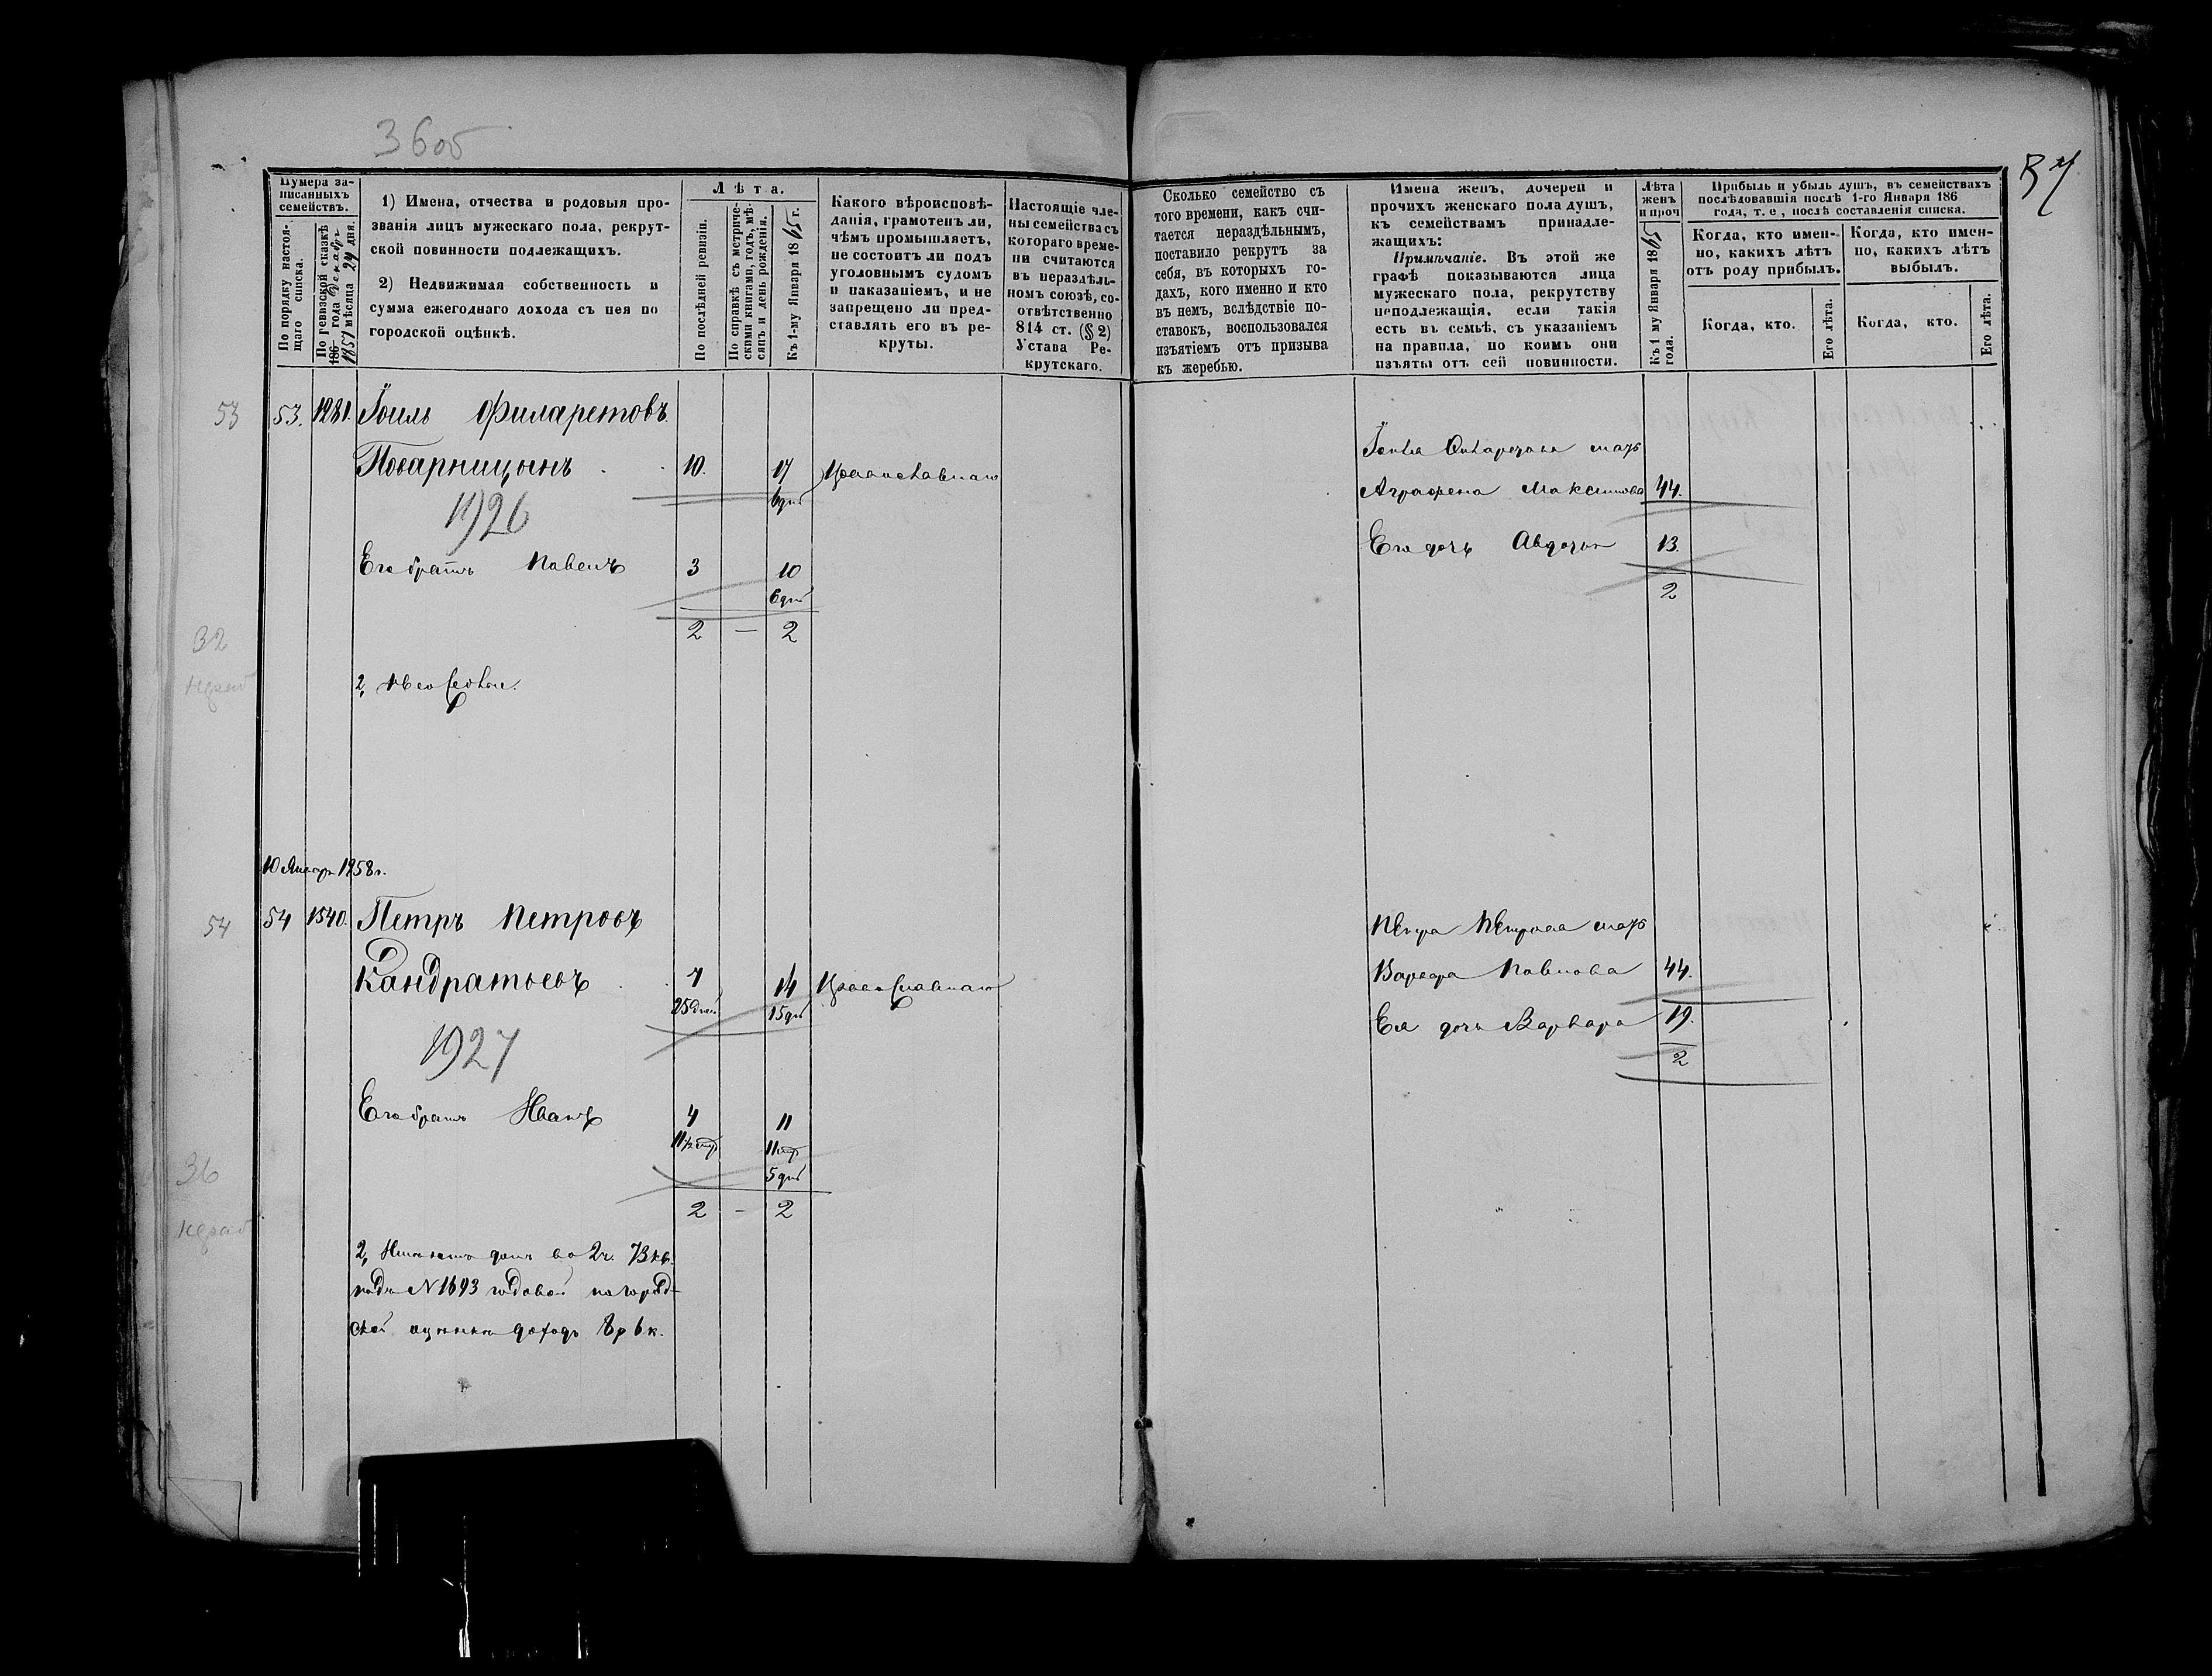 36об
37
Нумера за-
писанныхъ
семействъ.
По порядку настоя-
щаго списка.
По ревизской сказкѣ
186 года Декабр
1857 мѣсяца 24 дня.
1) Имена, отчества и родовыя про-
званія лицъ мужескаго пола, рекрут-
ской повинности подлежащихъ.
2) Недвижимая собственность и
сумма ежегоднаго дохода съ нея по
городской оцѣнкѣ.
Лѣта.
По послѣдней ревизіи.
По справкѣ съ метриче-
скими книгами, годъ, мѣ-
сяцъ и день рожденія.
Къ 1-му Января 1865 г.
Какого вѣроисповѣ-
данія, грамотенъ ли,
чѣмъ промышляетъ,
не состоитъ ли подъ
уголовнымъ судомъ
и наказаніемъ, и не
запрещено ли пред-
ставлять его въ ре-
круты.
Настоящіе чле-
ны семейства съ
котораго време-
ни считаются
въ нераздѣль-
номъ союзѣ, со-
отвѣтственно
814 ст. (§ 2)
Устава Ре-
крутскаго.
Сколько семейство съ
того времени, какъ счи-
тается нераздѣльнымъ,
поставило рекрутъ за
себя, въ которыхъ го-
дахъ, кого именно и кто
въ немъ, вслѣдствіе по-
ставокъ, воспользовался
изъятіемъ отъ призыва
къ жеребью.
Имена женъ, дочерей и
прочихъ женскаго пола душъ,
къ семействамъ принадле-
жащихъ:
Примѣчаніе. Въ этой же
графѣ показываются лица
мужескаго пола, рекрутству
неподлежащія, если такія
есть въ семьѣ, съ указаніемъ
на правила, по коимъ они
изъяты отъ сей повинности.
Лѣта
женъ
и проч
Къ 1 му Января 1865
года.
Прибыль и убыль душъ, въ семействахъ
послѣдовавшія послѣ 1-го Января 186
года, т. е., послѣ составленія списка.
Когда, кто имен-
но, какихъ лѣтъ
отъ роду прибылъ.
Когда, кто имен-
но, какихъ лѣтъ
выбылъ.
Когда, кто.
Его лѣта.
Когда, кто.
Его лѣта.
53 53. 1281. Іоиль Филаретовъ
Поварницынъ 10. 17 Православнаго
6 дн
1926
Его братъ Павелъ 3 10
6 дн
2 — 2
32
2,
Іоиля Филаретова мать
Аграфена Максимова 44.
Ея дочь Авдотья 13.
2
10 Января 1858 г.
54 54 1540. Петръ Петровъ
Кандратьевъ 7 14 Православнаго
25 дней 15 дн
1927
Его братъ Иванъ 4 11
11 11
5 дн
2 - 2
36
2, Имѣютъ домъ во 2 ч. 73 кв.
подъ N 1693 годовой по город-
ской оцѣнки доходъ 8 р 6 к.
Петра Петрова мать
Варвара Павлова 44.
Ея дочь Варвара 19.
2